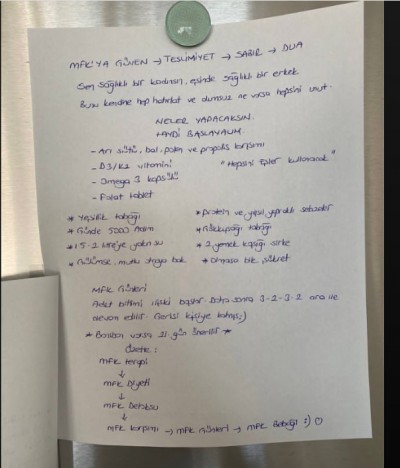 MFK'YA GÜVEN → TESLİMİYET → SABIR → DUA
Sen sağlıklı bir kadınsın, eşinde sağlıklı bir erkek
Bunu kendine hep hatırlat ve olumsuz ne varsa hepsini unut.
NELER YAPACAKSIN.
HAYDİ BAŞLAYALIM
- Arı sütü, bal, polen ve propolis karışımı
- D3/K2 vitamini "Hepsini Eşler kullanacak"
- Omega 3 kapsülü
- Folat tablet
* Yeşillik tabağı * Protein ve yeşil yapraklı sebzeler
* Günde 5000 Adım * Gökkuşağı tabağı
* 1.5-2 litre'ye yakın su * 2 yemek kaşığı sirke
* Gülümse, mutlu ol hayata bak * Olmasa bile şükret
MFK Günleri
Adet bitimi ilişki başlar Daha sonra 3-2-3-2 ara ile
devam edilir Gerisi kişiye kalmış;)
* Balıkan varsa 21. gün önerilir *
Özetle:
MFK terapi
↓
MFK Diyeti
↓
MFK Detoksu
↓
MFK karışımı → MFK Günleri → MFK Bebeği :)